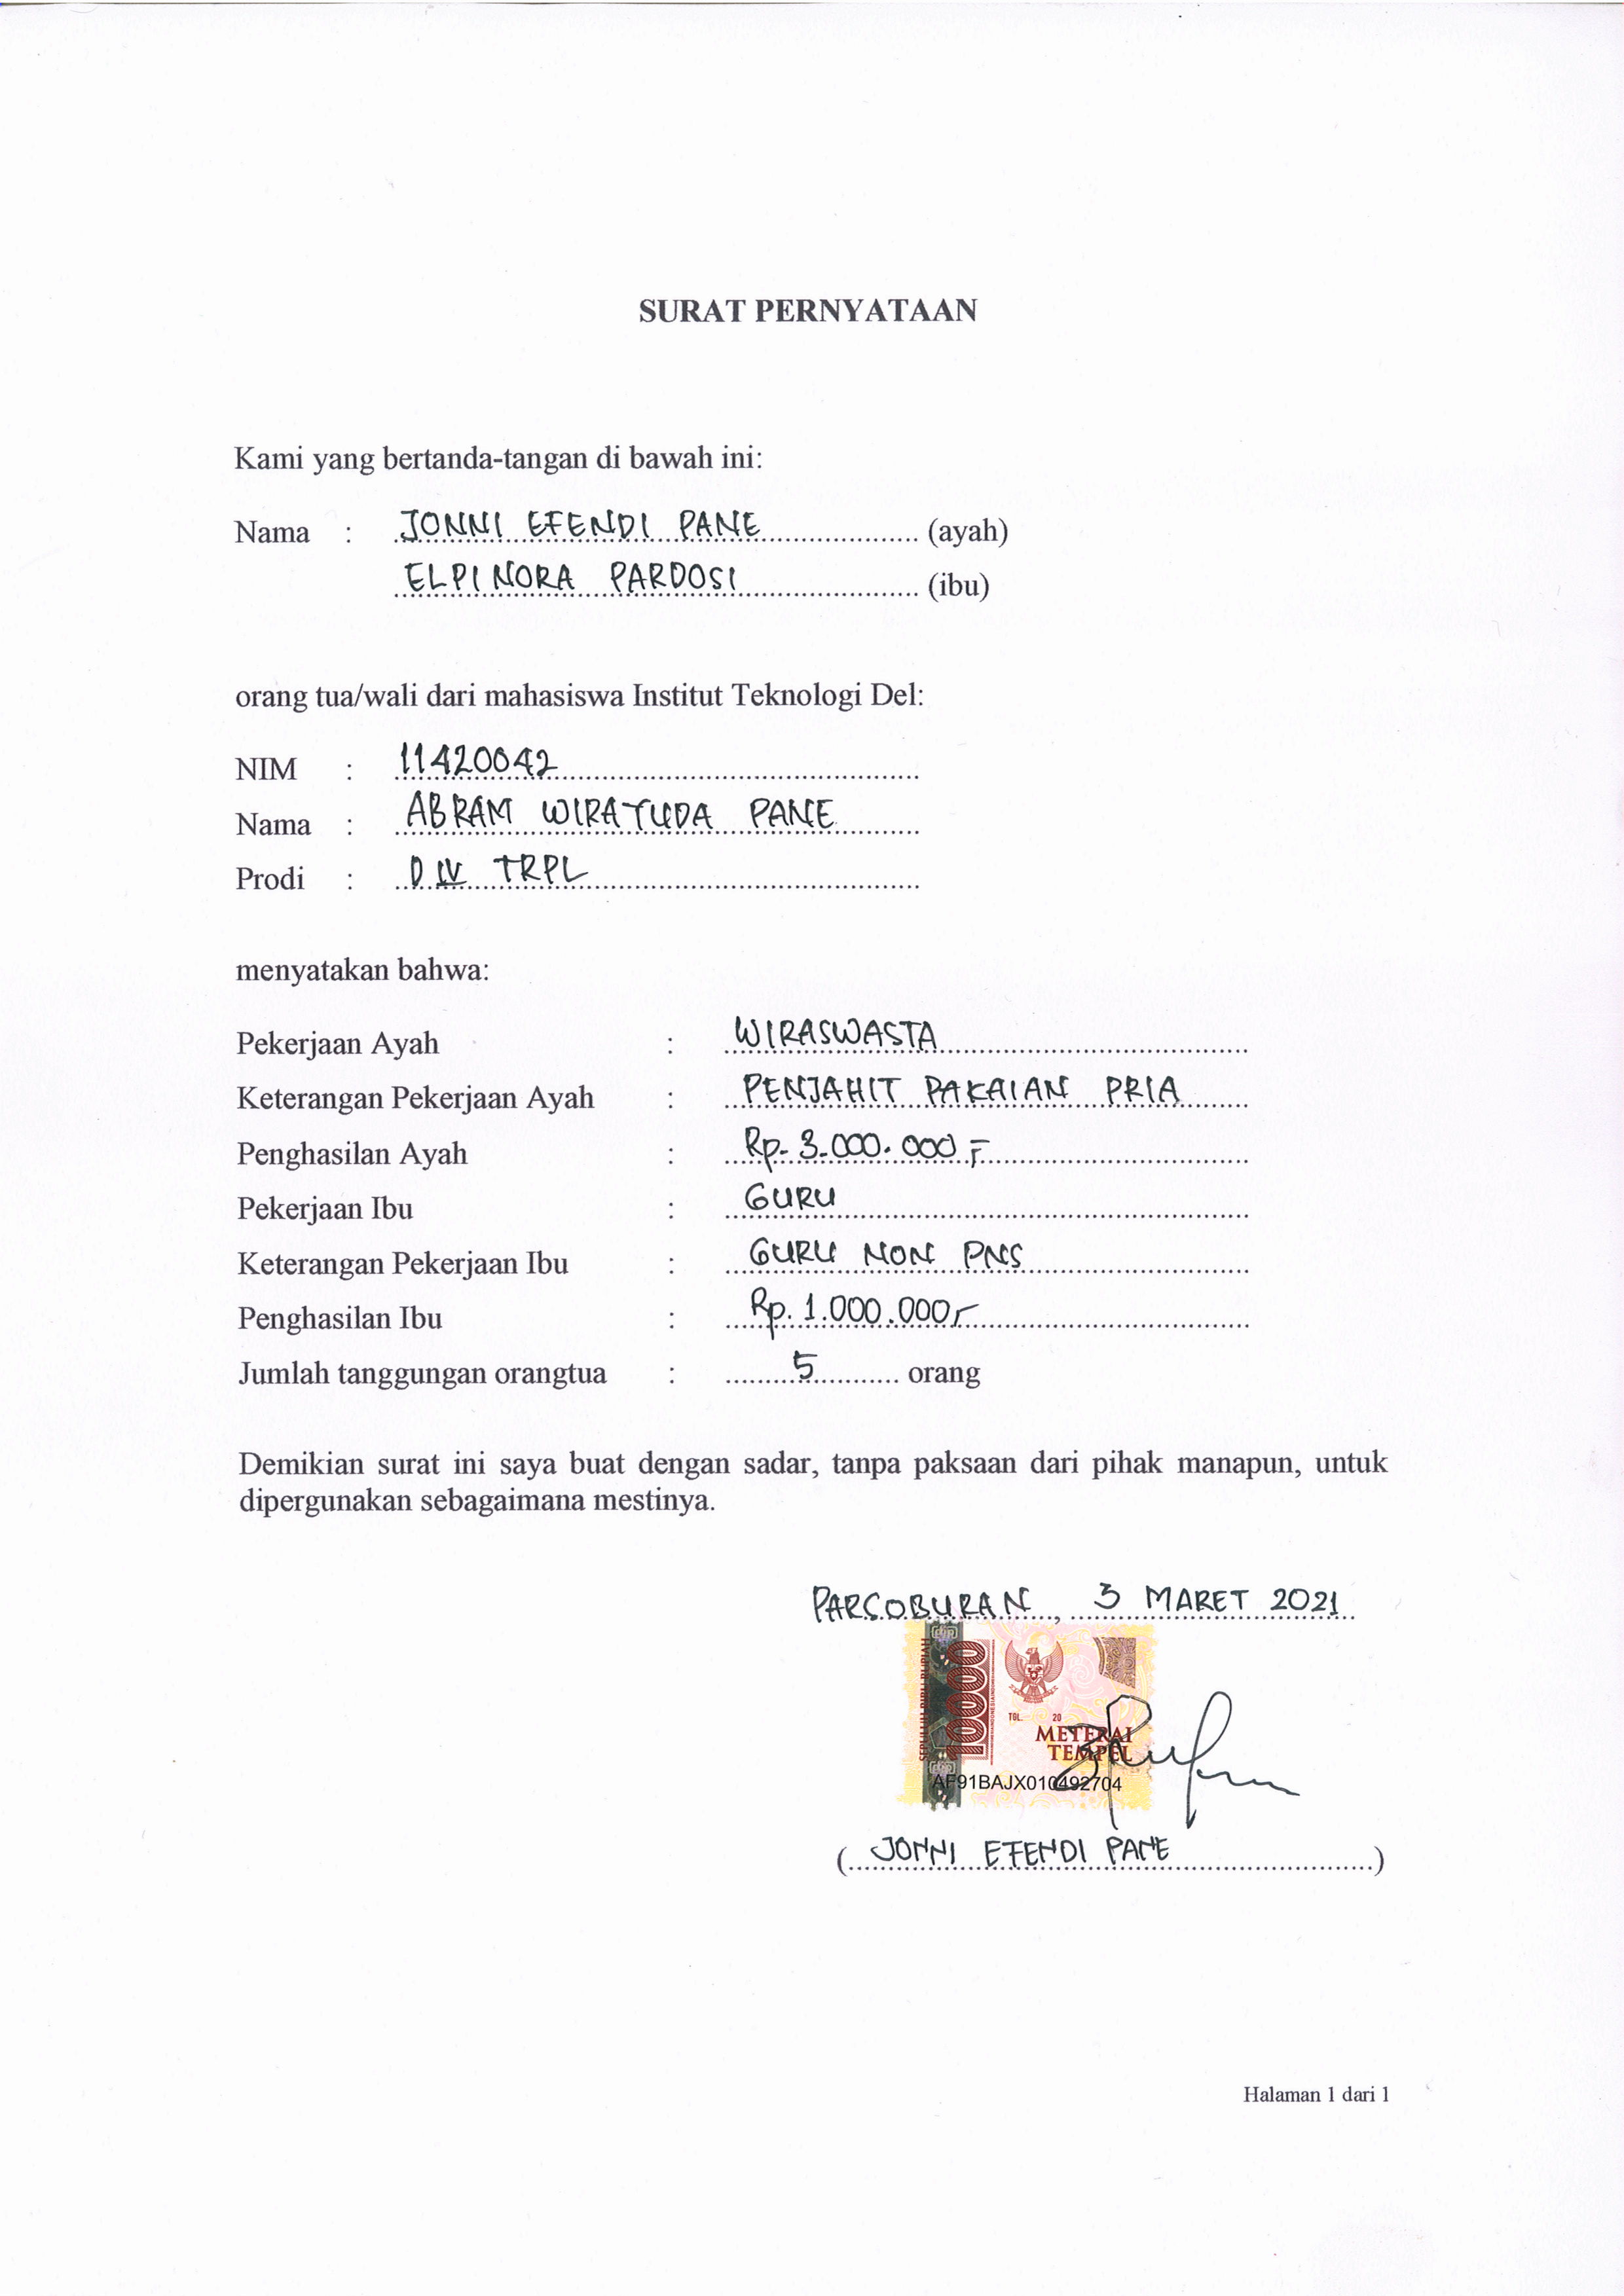 SURAT PERNYATAAN
Kami yang bertanda-tangan di bawah ini:
Nama : JONNI EFENDI PANE (ayah)
ELPINORA PARDOSI (ibu)
orang tua/wali dari mahasiswa Institut Teknologi Del:
NIM : 11420042
Nama : ABRAM WIRATUDA PANE
Prodi : D IV TRPL
menyatakan bahwa:
Pekerjaan Ayah : WIRASWASTA
Keterangan Pekerjaan Ayah : PENJAHIT PAKAIAN PRIA
Penghasilan Ayah : Rp. 3.000.000,-
Pekerjaan Ibu : GURU
Keterangan Pekerjaan Ibu : GURU NON PNS
Penghasilan Ibu : Rp. 1.000.000,-
Jumlah tanggungan orangtua : 5 orang
Demikian surat ini saya buat dengan sadar, tanpa paksaan dari pihak manapun, untuk
dipergunakan sebagaimana mestinya.
PARSOBURAN, 3 MARET 2021
SEPULUH RIBU RUPIAH
10000
TGL. 20
METERAI
TEMPEL
AF91BAJX010492704
(JONNI EFENDI PANE)
Halaman 1 dari 1